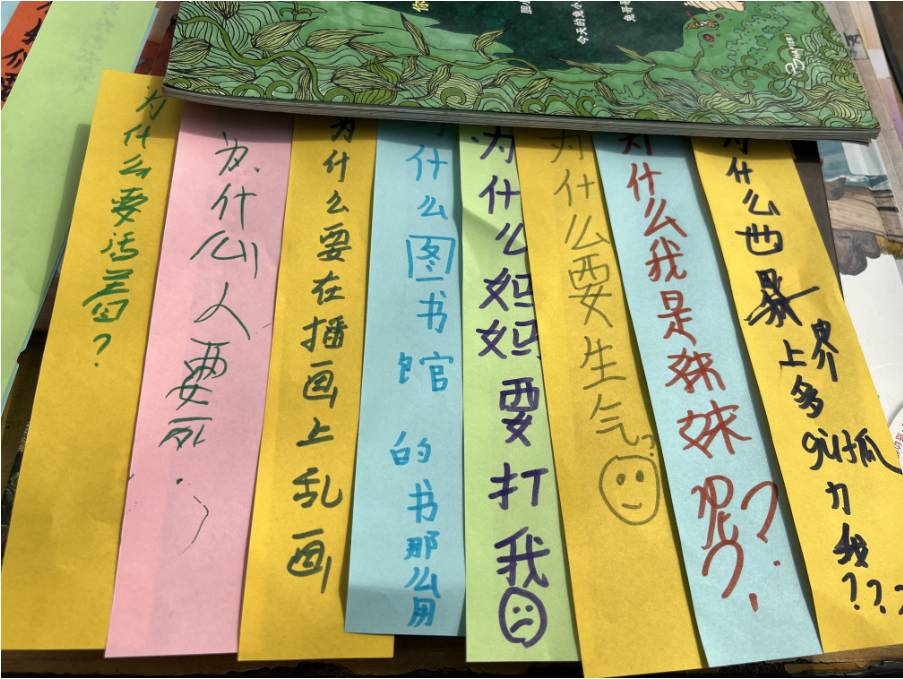 今天的
你
为什么要活着?
为什么人要死.
为什么要在播画上乱画
为什么图书馆的书那么用
为什么妈妈要打我
为什么要生气?
为什么我是妹妹呢??
为什么世界上多力我???